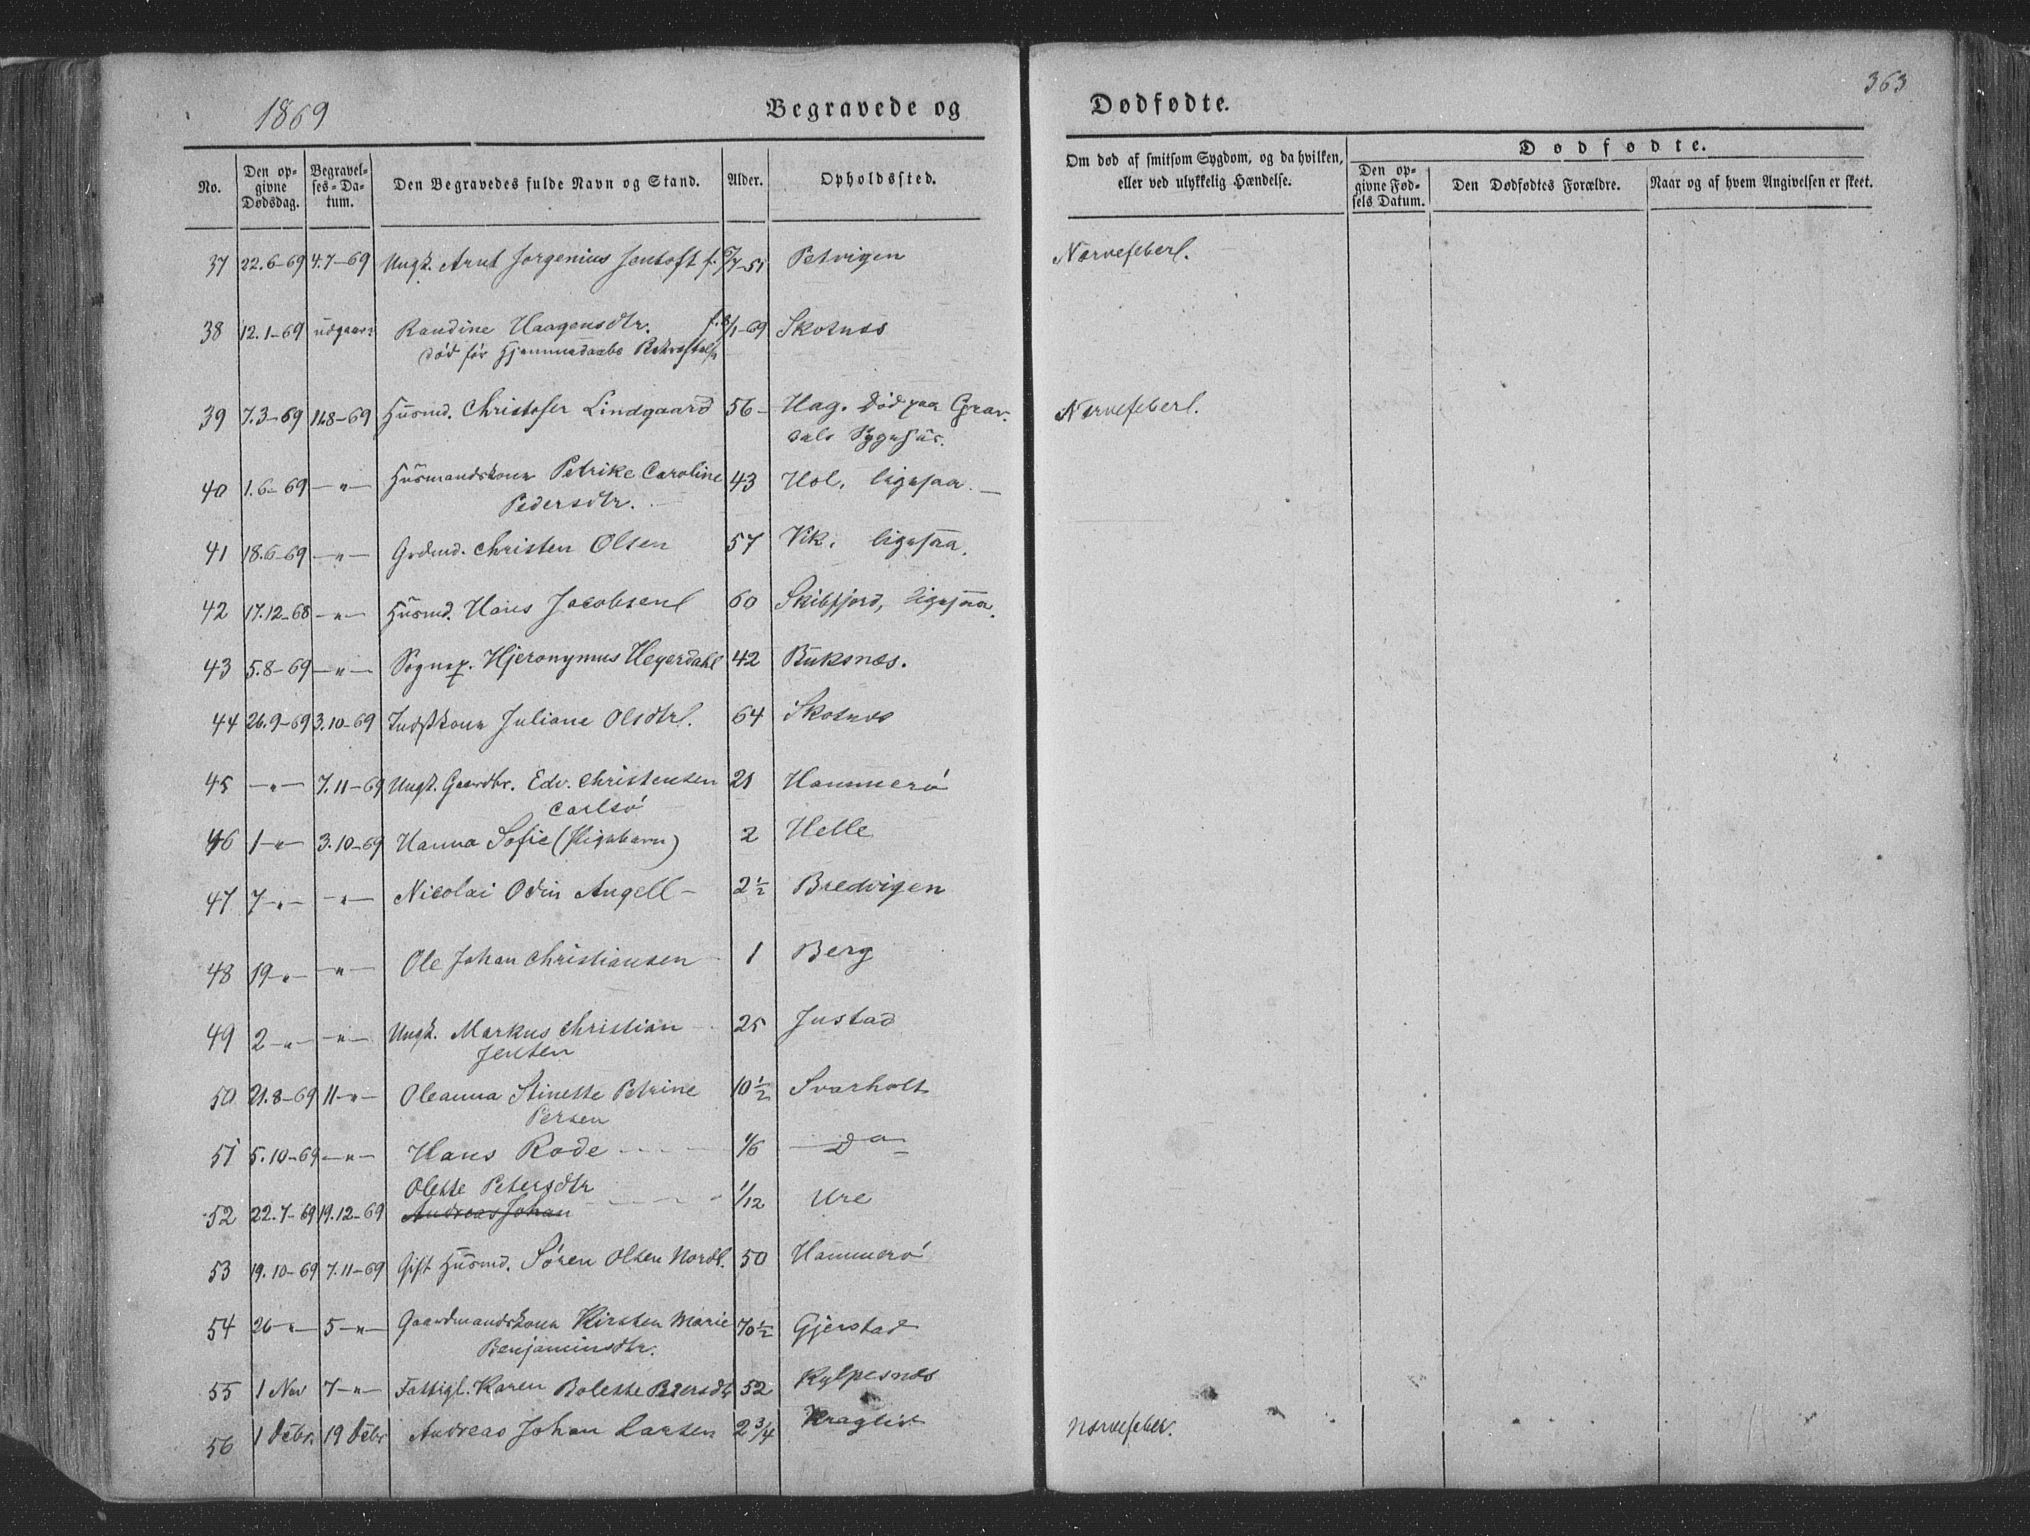 1869
Begravede og Dødfødte.
363
No.
Den opgivne Dødsdag.
Begravelses-Datum.
Den Begravedes fulde Navn og Stand.
Alder.
Opholdssted.
Om død af smitsom Sygdom, og da hvilken, eller ved ulykkelig Hændelse.
Dødfødte.
Den opgivne Fødsels Datum.
Den Dødfødtes Forældre.
Naar og af hvem Angivelsen er skeet.
37 22.6-69 4.7-69 Ungk. Arnt Jorgenius Jentoft f. 6/7-51 Petvigen Nervefeber.
38 12.1-69 udgaar Randine Haagensdtr. f. 8/1-69 Skotnes
død før Hjemmedaabs
39 7.3-69 11.8-69 Husmd. Christofer Lindgaard 56 - Hag. Død paa Grav- Nervefeber.
dals Sygehus.
40 1.6-69 -"- Husmandskone Petrike Caroline 43 Hol, ligesaa. -
Pedersdtr. -
41 18.6-69 -"- Grdmd. Christen Olsen 57 Vik, ligesaa.
42 17.12-68 -"- Husmd. Hans Jacobsen 60 Skibfjord, ligesaa.
43 5.8-69 -"- Sognep. Hjeronymus Heyerdahl 42 Buksnes.
44 26.9-69 3.10-69 Indstkone Juliane Olsdtr. 64 Skotnes
45 -"- 7.11-69 Ungk. Gaardbr. Edv. Christensen 21 Hammerø
Carlsø
46 1-"- 3.10-69 Hanna Sofie (Pigebarn) 2 Helle
47 7-"- -"- Nicolai Odin Angell - 2½ Bredvigen
48 19-"- -"- Ole Johan Christiansen - 1 Berg
49 2-"- -"- Ungk. Markus Christian - 25 Justad
Jensen
50 21.8-69 11-"- Oleanna Stinette Petrine 10½ Svarholt
Persen
51 5.10-69 -"- Hans Rode 1/6 - Do -
Olette Petersdtr
52 22.7-69 19.12-69 Andreas Johan 1/12 Ure
53 19.10-69 7.11-69 Gift Husmd. Søren Olsen Nordl. 50 Hammerø
54 26-"- 5-"- Gaardmandskone Kirsten Marie 70½ Gjerstad
Benjaminsdtr.
55 1 Nov 7-"- Fattigl. Karen Bolette 52
56 1 Decbr. 19 Decbr Andreas Johan Larsen 2¾ Nervefeber.